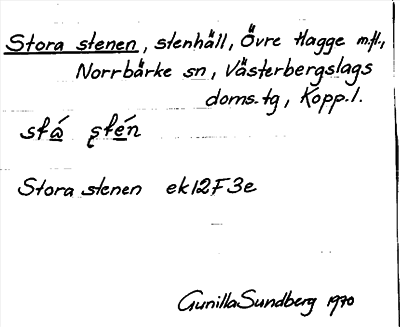 Stora stenen, stenhäll, Övre Hagge m.fl.,
Norrbärke sn, Västerbergslags
doms.tg, Kopp.l.
Stora stenen ek12F3e
Gunilla Sundberg 1970